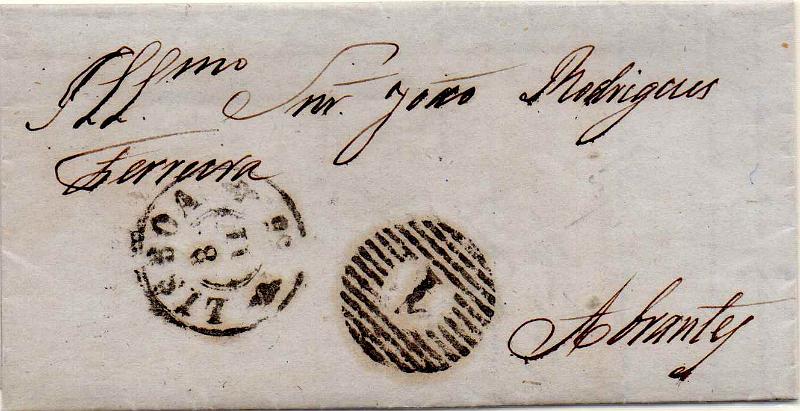 Ill.mo Snr. João Rodrigues
Ferreira
LISBOA
8
11
1
Abrantes